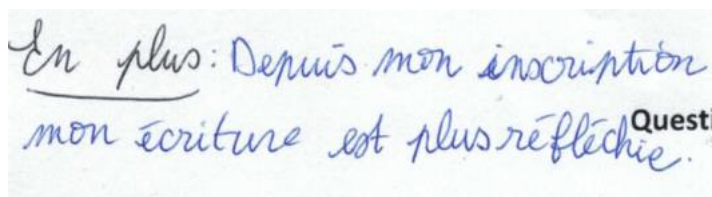 En plus: Depuis mon inscription
mon écriture est plus réfléchie.
Questi